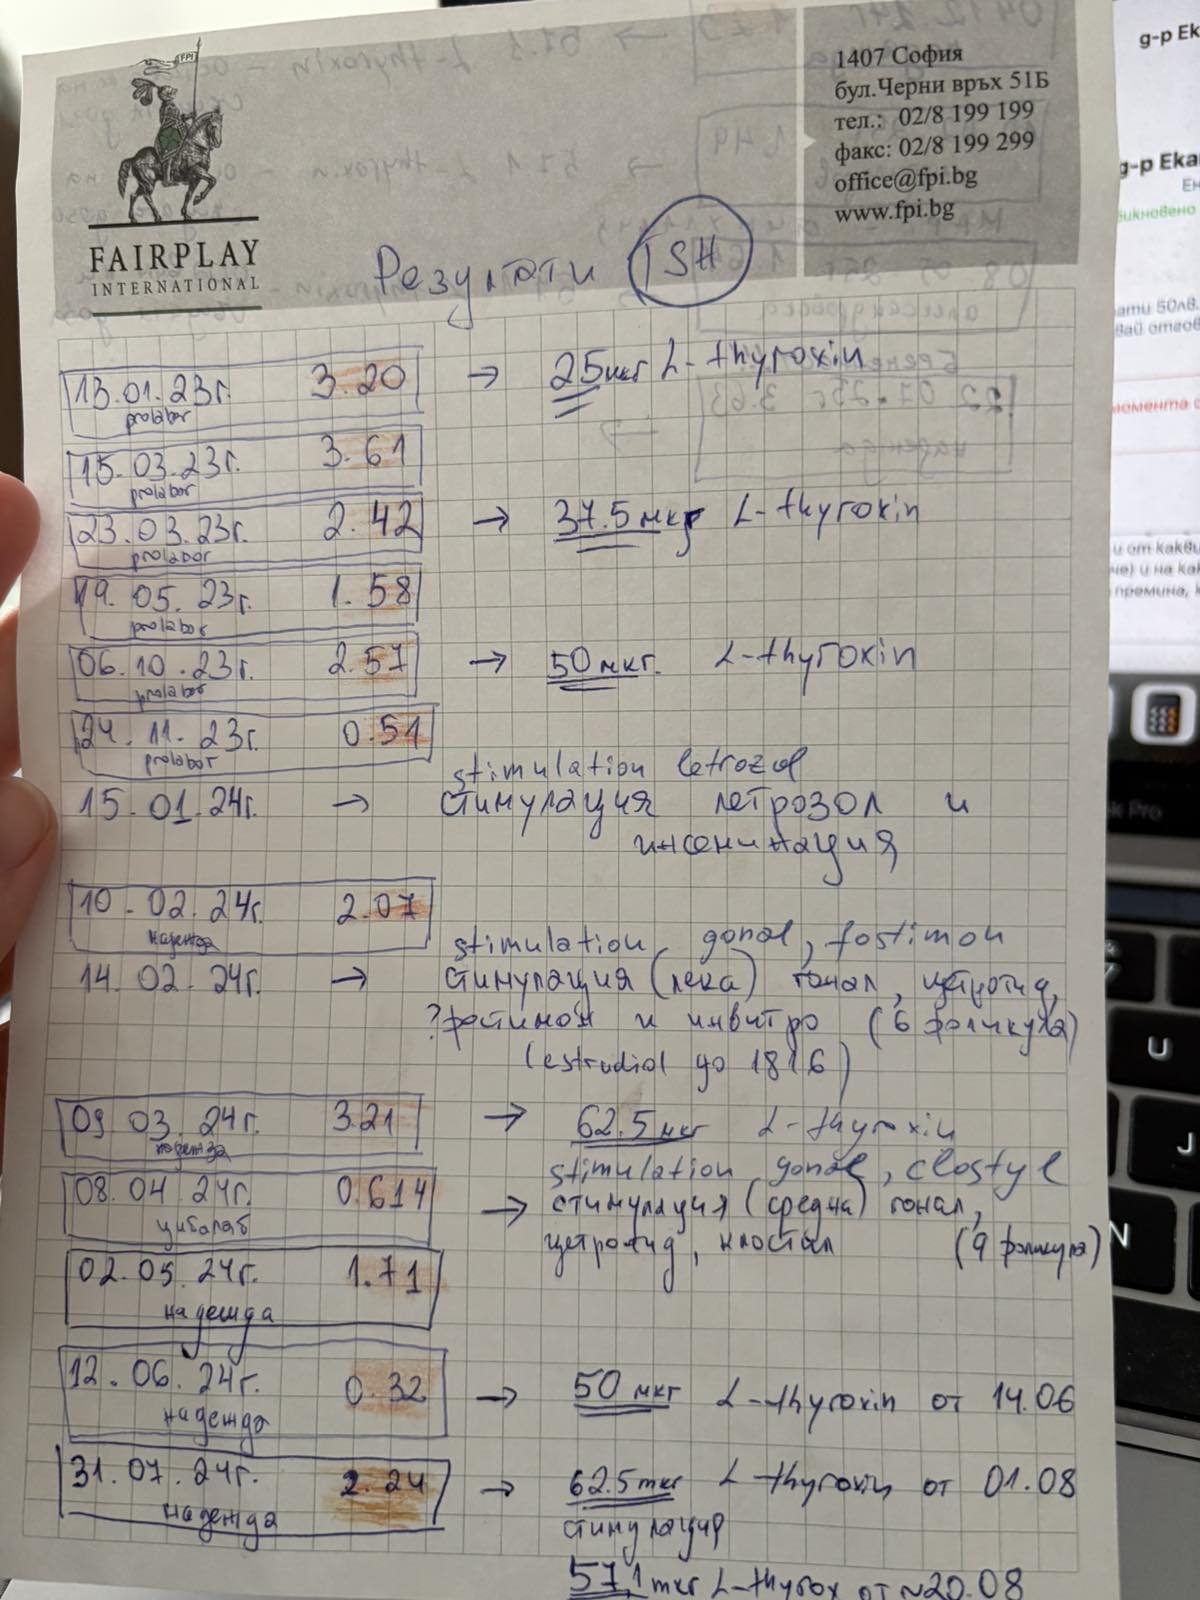 FPI
FAIRPLAY
INTERNATIONAL
1407 София
бул.Черни връх 51Б
тел.: 02/8 199 199
факс: 02/8 199 299
office@fpi.bg
www.fpi.bg
Резултати TSH
13.01.23г. 3.20 → 25мкг L-thyroxin
prolabor
15.03.23г. 3.61
prolabor
23.03.23г. 2.42 → 37.5 мкг L-thyroxin
prolabor
19.05.23г. 1.58
prolabor
06.10.23г. 2.57 → 50 мкг. L-thyroxin
prolabor
24.11.23г. 0.51
prolabor
stimulation letrozol
15.01.24г. → стимулация летрозол и
инсеминация
10.02.24г. 2.07
надежда
stimulation gonal, fostimon
14.02.24г. → стимулация (лека) гонал, цетротид,
?фостимон и инвитро (6 фоликула)
(estradiol до 1816)
09.03.24г. 3.21 → 62.5 мкг L-thyroxin
надежда
stimulation gonal, clostyl
08.04.24г. 0.614 → стимулация (средна) гонал,
цибалаб
цетротид, клостил (9 фоликула)
02.05.24г. 1.71
надежда
12.06.24г. 0.32 → 50 мкг L-thyroxin от 14.06
надежда
31.07.24г. 2.24 → 62.5 mкг L-thyroxin от 01.08
надежда
стимулация
57,1 mкг L-thyrox от ~20.08
g-p Ek
g-p Eka
викновено
ати 50лв.
вай отгов
момента с
и от какви
че) и на как
премина, к
k Pro
U
J
N